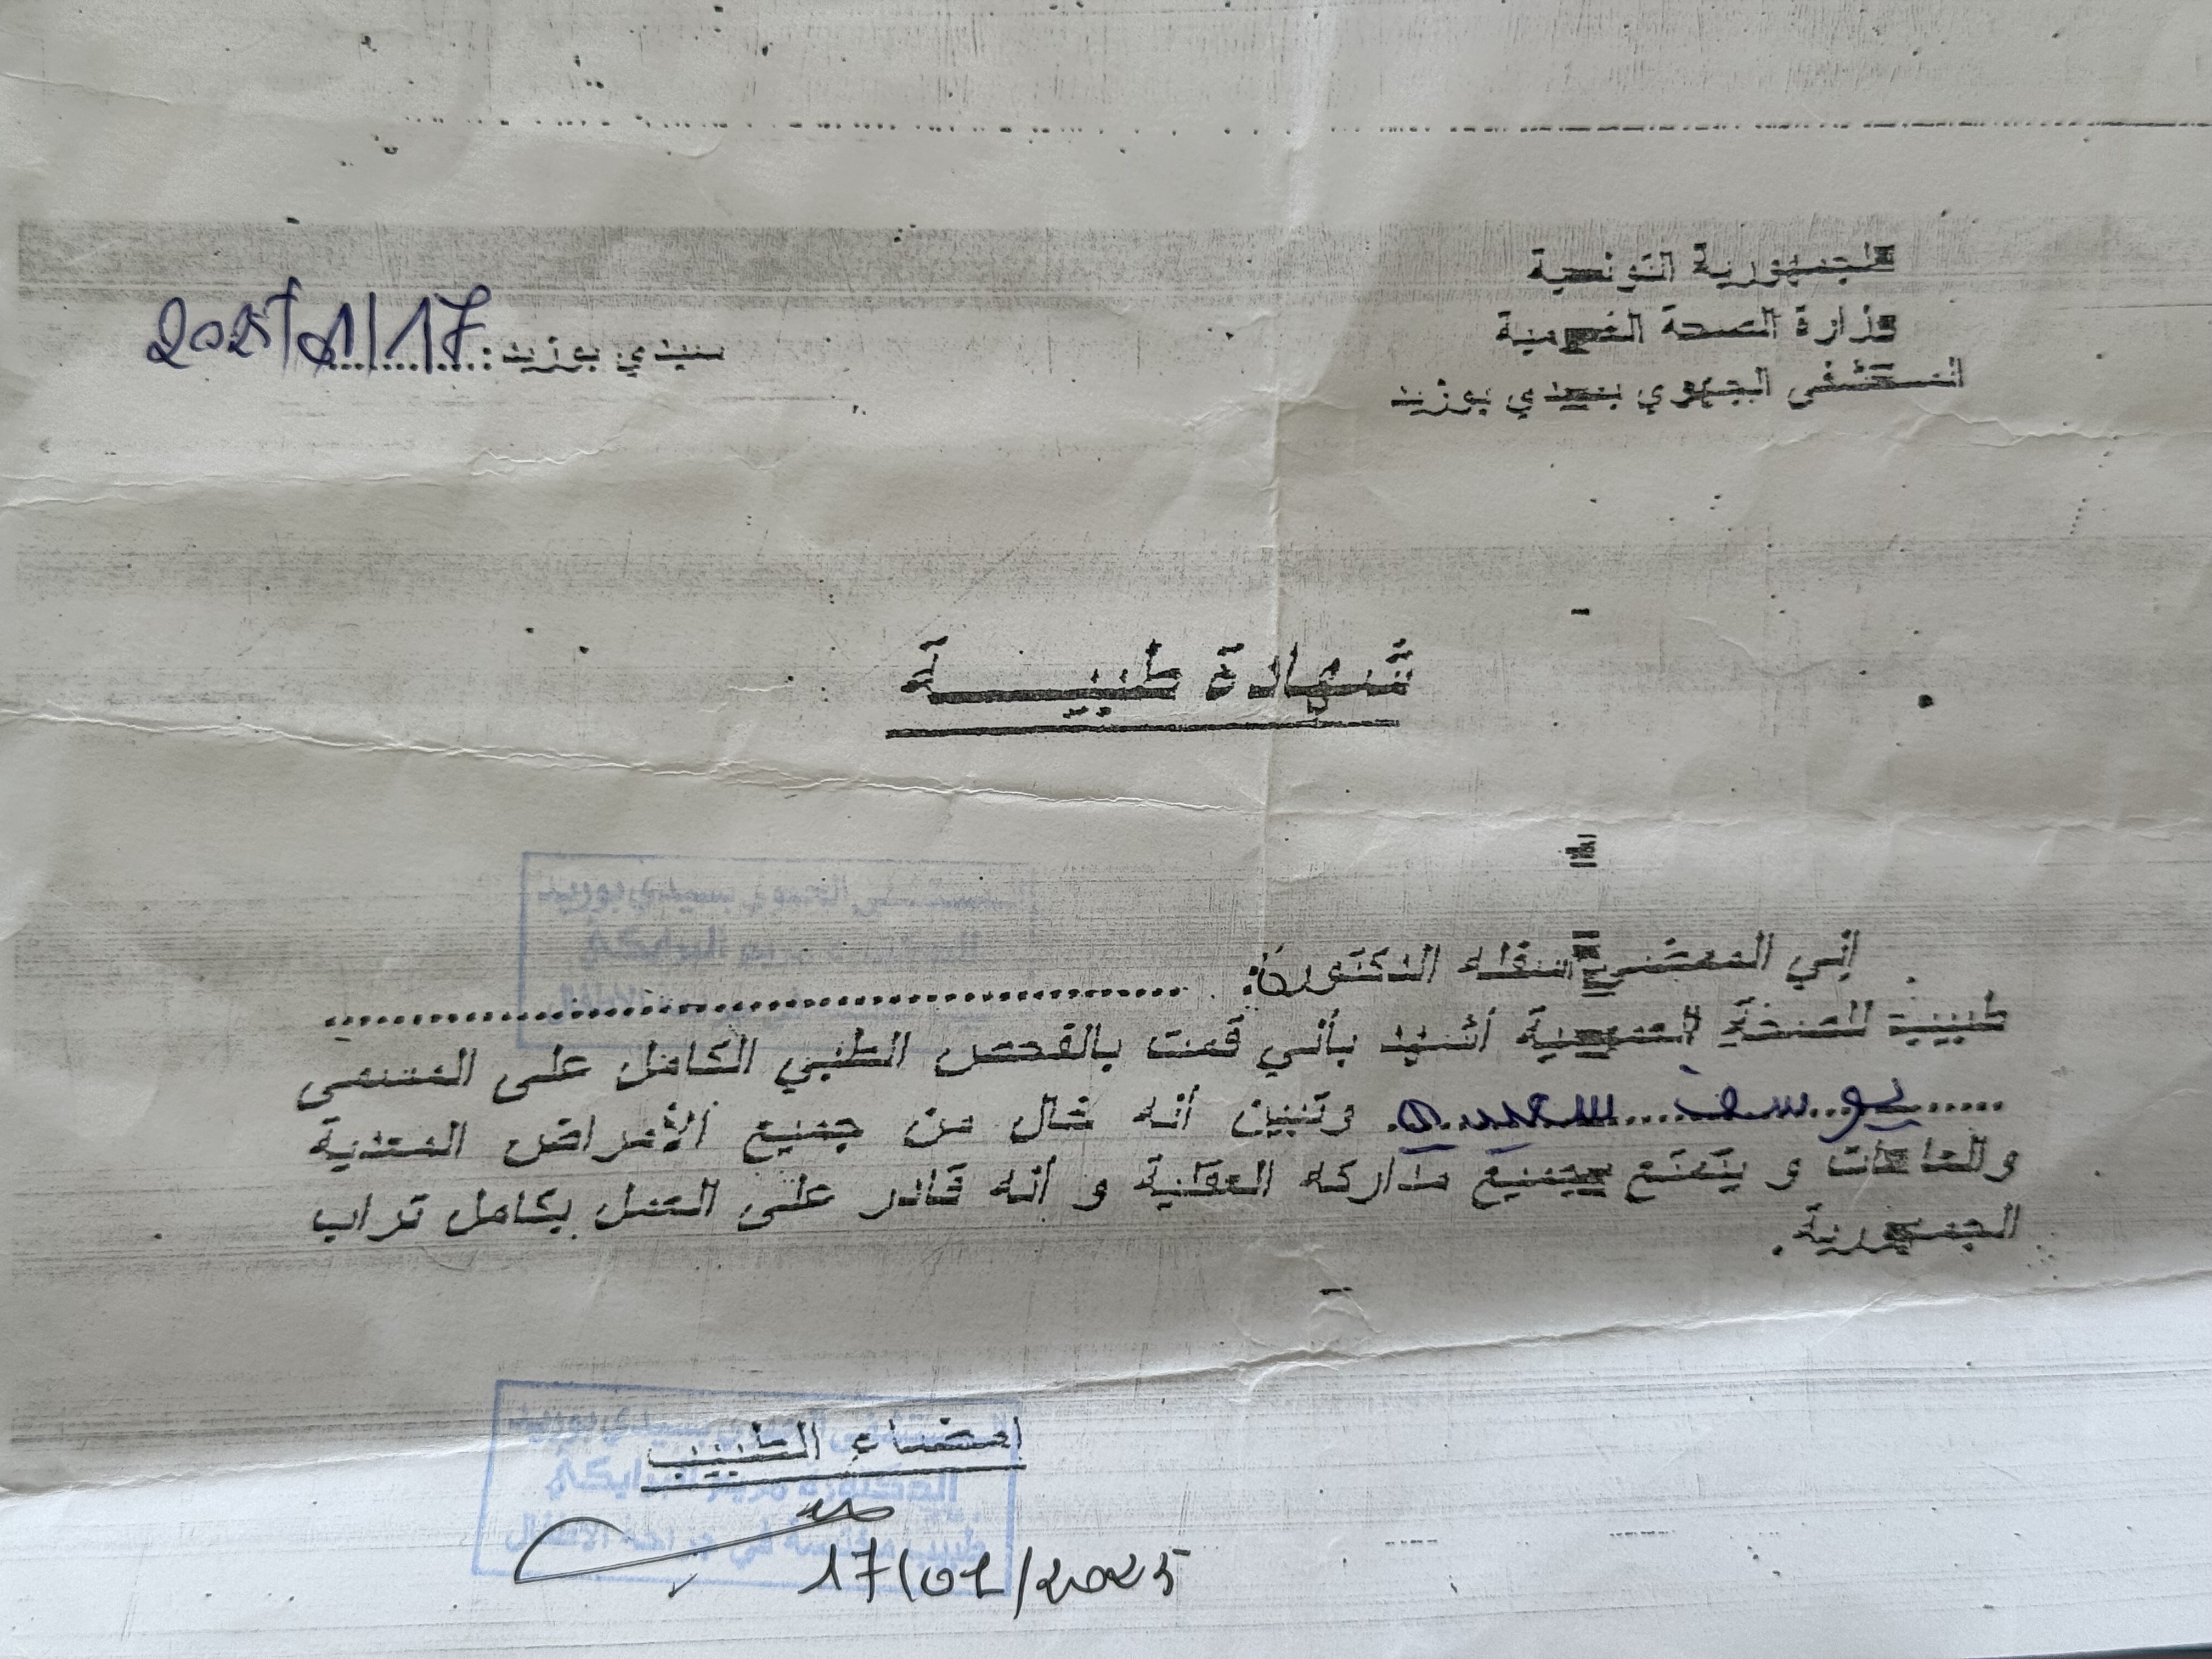 الجمهورية التونسية
وزارة الصحة العمومية
المستشفى الجهوي بسيدي بوزيد
سيدي بوزيد: 2025/01/17
شهادة طبيـــــة
إني الممضي أسفله الدكتورة:
طبيبة الصحة العمومية أشهد بأني قمت بالفحص الطبي الكامل على المسمى
يوسف وتبين أنه خال من جميع الأمراض المعدية
والعاهات و يتمتع بجميع مداركه العقلية و أنه قادر على العمل بكامل تراب
الجمهورية.
المستشفى الجهوي بسيدي بوزيد
امضاء الطبيب
المستشفى الجهوي بسيدي بوزيد
الدكتورة مريم
في جراحة الأطفال
17/01/2025